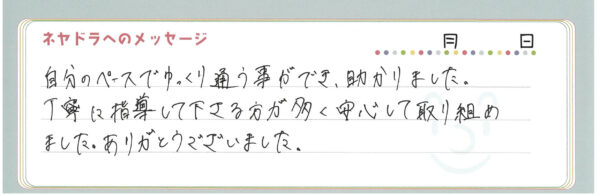 ネヤドラへのメッセージ　　月　　日
自分のペースでゆっくり通う事ができ、助かりました。
丁寧に指導して下さる方が多く安心して取り組め
ました。ありがとうございました。